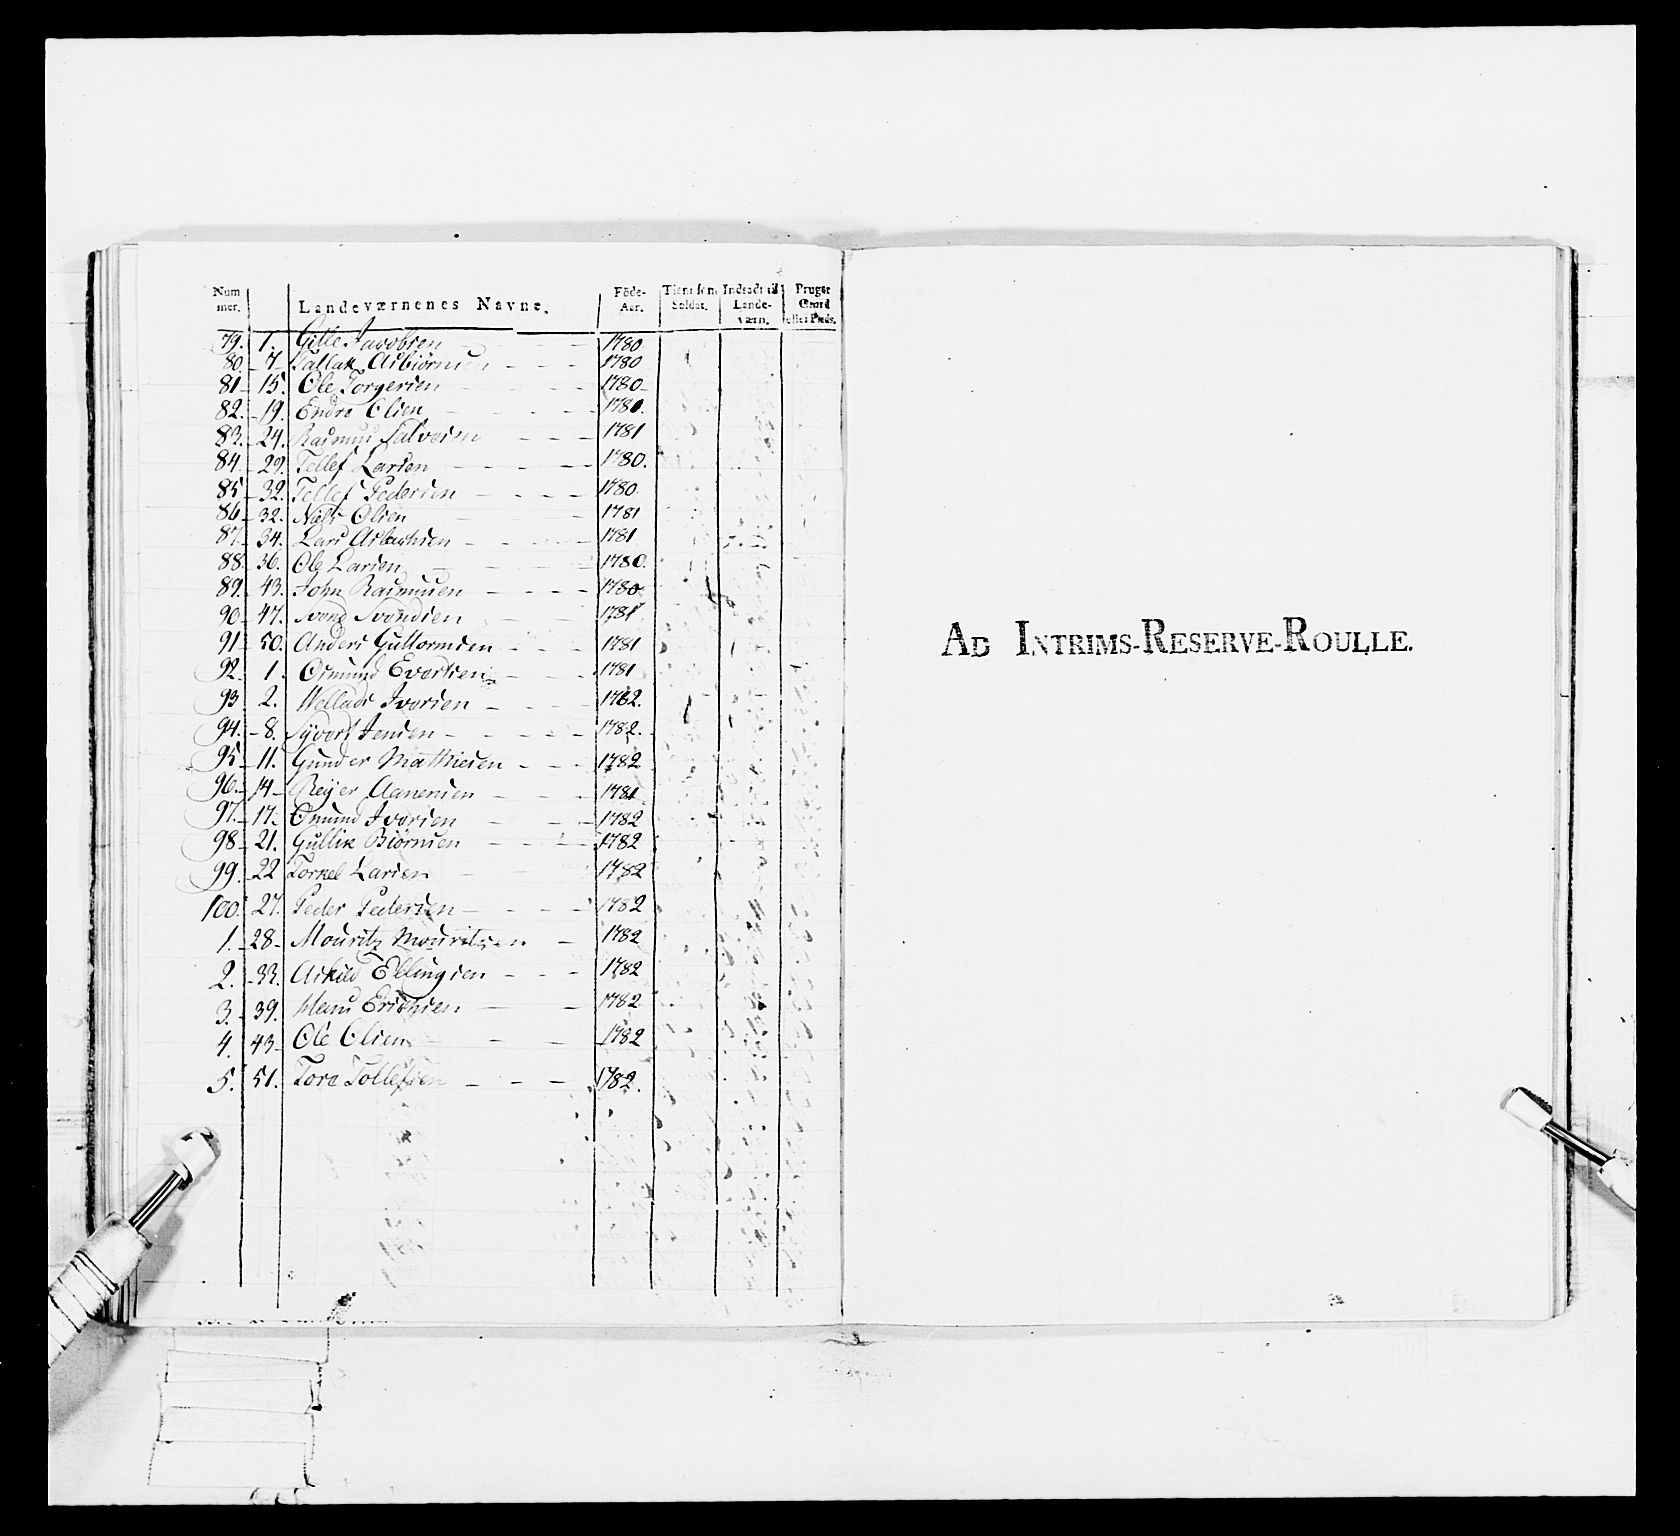 Num mer. Landeværnenes Navne. Föde- Aar. Tient som Soldat. Indsadt til Lande- værn. Bruger Gaard eller Plads.
79. 1. Gille Jacobsen 1780
80 7 Tallak Asbiörnsen 1780
81 15. Ole Torgersen 1780
82. 19. Endre Olsen 1780.
83. 24. Rasmus Salvesen 1781
84. 29. Tellef Larsen 1780.
85 32. Tellef Pedersen 1780
86 32. Niels Olsen 1781
87. 34. Lars Aslachsen 1781
88. 36. Ole Larsen 1780.
89. 43. John Rasmusen 1780
90 47. Svend Svendsen 1781
91 50. Anders Guttormsen 1781
92. 1. Osmund Evertsen 1781
93 2. Wellads Iversen 1782.
94. 8. Syvert Jensen 1782.
95 11. Gunder Mathiesen 1782
96. 14 Reyer Aanensen 1781
97. 17. Osmund Iversen 1782
98 21. Gullik Biörnsen 1782
99. 22 Torkel Larsen 1782
100. 27. Peder Pedersen 1782
1. 28 Mouritz Mouritsen 1782
2. 33. Askild Ellingsen 1782
3. 39. Hans Erichsen 1782
4. 43 Ole Olsen 1782
5. 51. Tore Tollefsen 1782.
AD INTRIMS-RESERVE-ROULLE.